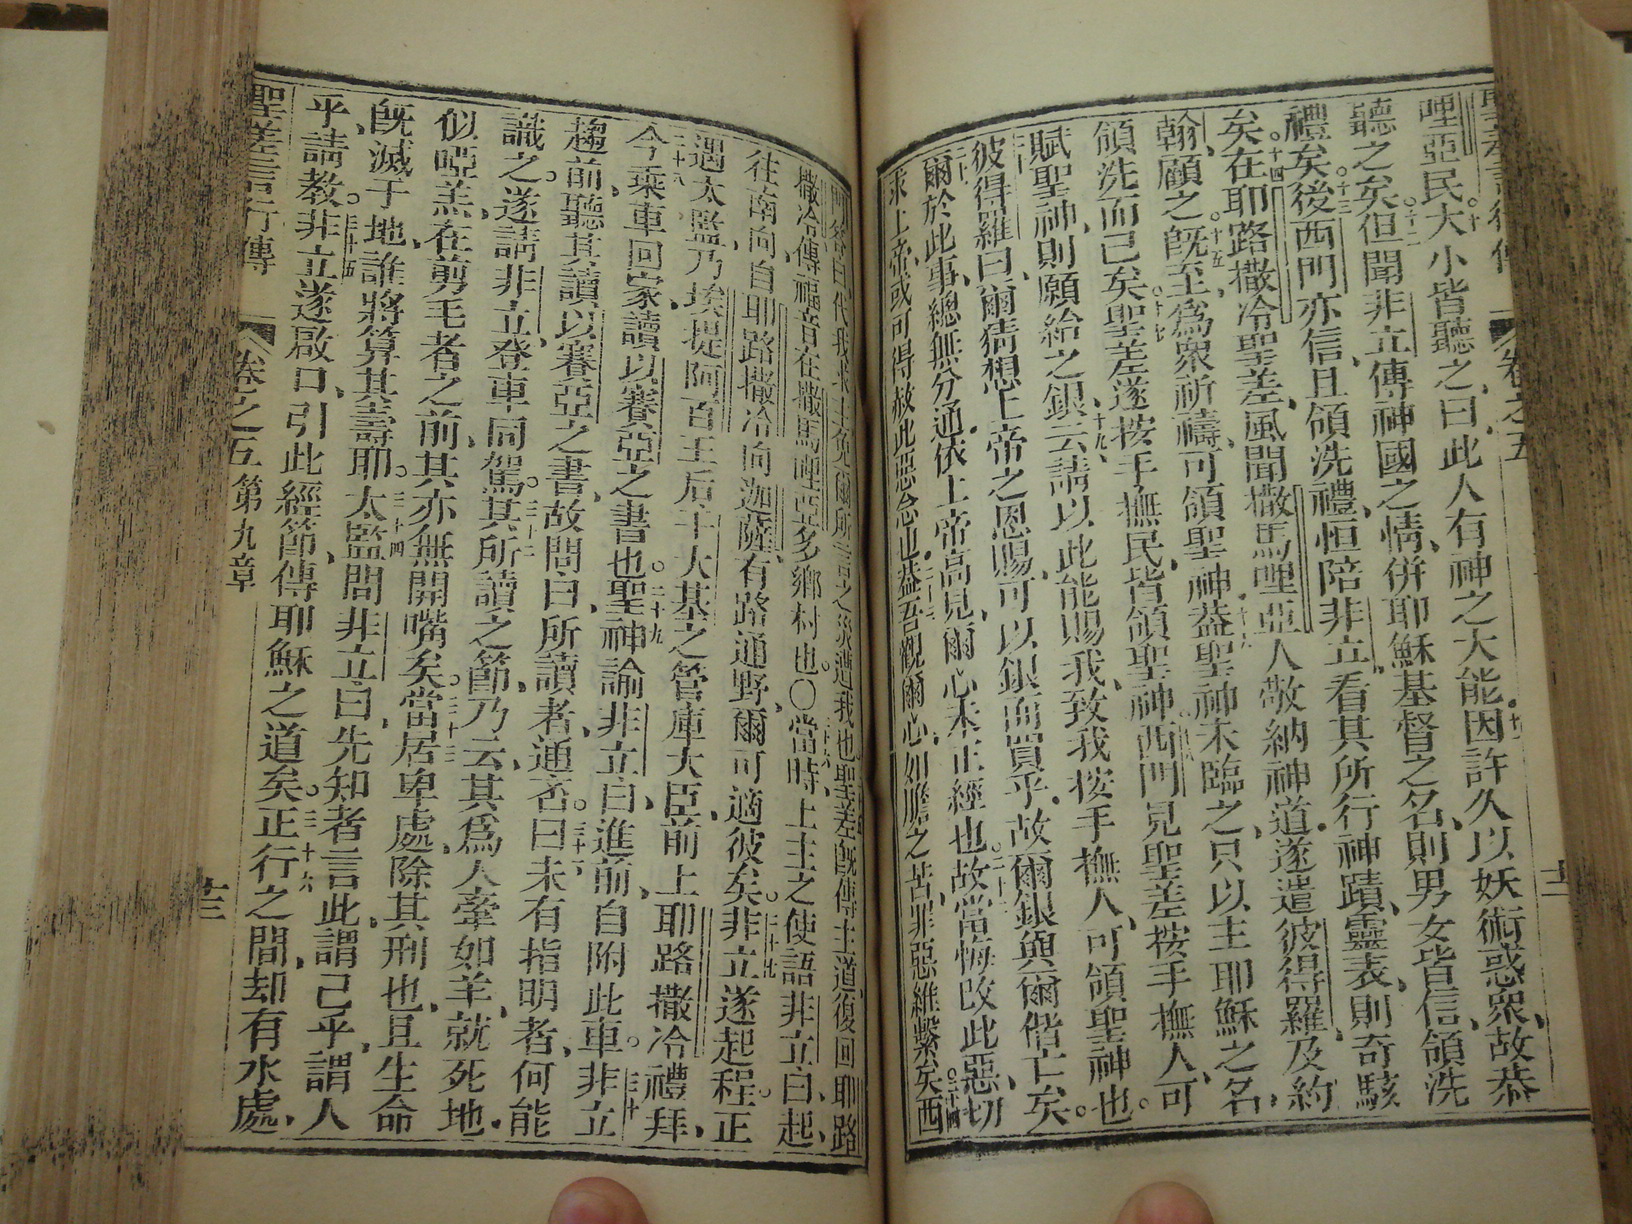 哩亞民大小皆聽之曰此人有神之大能因許久以妖術惑眾故恭
聽之矣但聞非立傳神國之情併耶穌基督之名則男女皆信領洗
禮矣後西門亦信且領洗禮恒陪非立看其所行神蹟靈表則奇駭
矣在耶路撒冷聖差風聞撒馬哩亞人敬納神道遂遣彼得羅及約
翰顧之既至為眾祈禱可領聖神蓋聖神未臨之只以主耶穌之名
領洗而已矣聖差遂按手撫民皆領聖神西門見聖差按手撫人可
賦聖神則願給之銀云請以此能賜我致我按手撫人可領聖神也
彼得羅曰爾猜想上帝之恩賜可以銀而買乎故爾銀與爾偕亡矣
爾於此事總無分通依上帝高見爾心未正經也故當悔改此惡切
求上帝或可得赦此惡念也蓋吾觀爾心如膽之苦罪惡維繫矣西
門答曰代我求主免爾所言之災遭我也聖差既傳主道復回耶路
撒冷傳福音在撒馬哩亞多鄉村也〇當時上主之使語非立曰起
往南向自耶路撒冷向迦薩有路通野爾可適彼矣非立遂起程正
遇太監乃埃提阿百王后干大基之管庫大臣前上耶路撒冷禮拜
今乘車回家讀以賽亞之書也聖神諭非立曰進前自附此車非立
趨前聽其讀以賽亞之書故問曰所讀者通否曰未有指明者何能
識之遂請非立登車同駕其所讀之節乃云其為人牽如羊就死地
似啞羔在剪毛者之前其亦無開嘴矣當居卑處除其刑也且生命
既滅于地誰將算其壽耶太監問非立曰先知者言此謂己乎謂人
乎請教非立遂啟口引此經節傳耶穌之道矣正行之間却有水處
聖差言行傳 卷之五 第九章